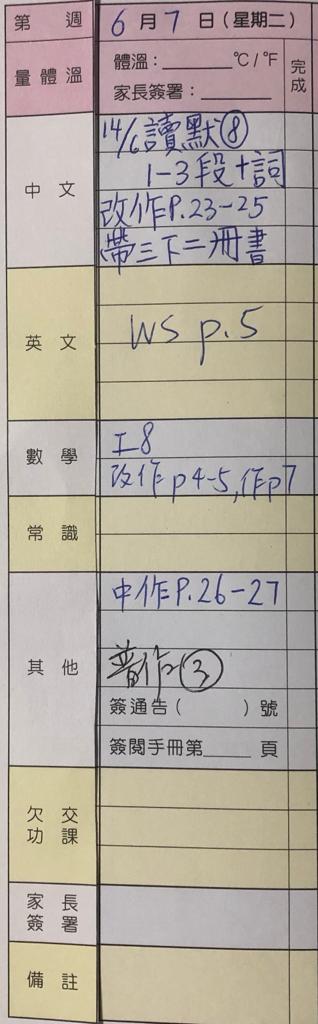 第 週 6 月 7 日 (星期二)
量體溫 體溫：______°C/°F 完成
家長簽署：______
中文 14/6讀默⑧
1-3段+詞
改作P.23-25
帶三下二冊書
英文 WS p.5
數學 工8
改作p4-5,作p7
常識
其他 中作P.26-27
普作③
簽通告( )號
簽閱手冊第____頁
欠交功課
家長簽署
備註